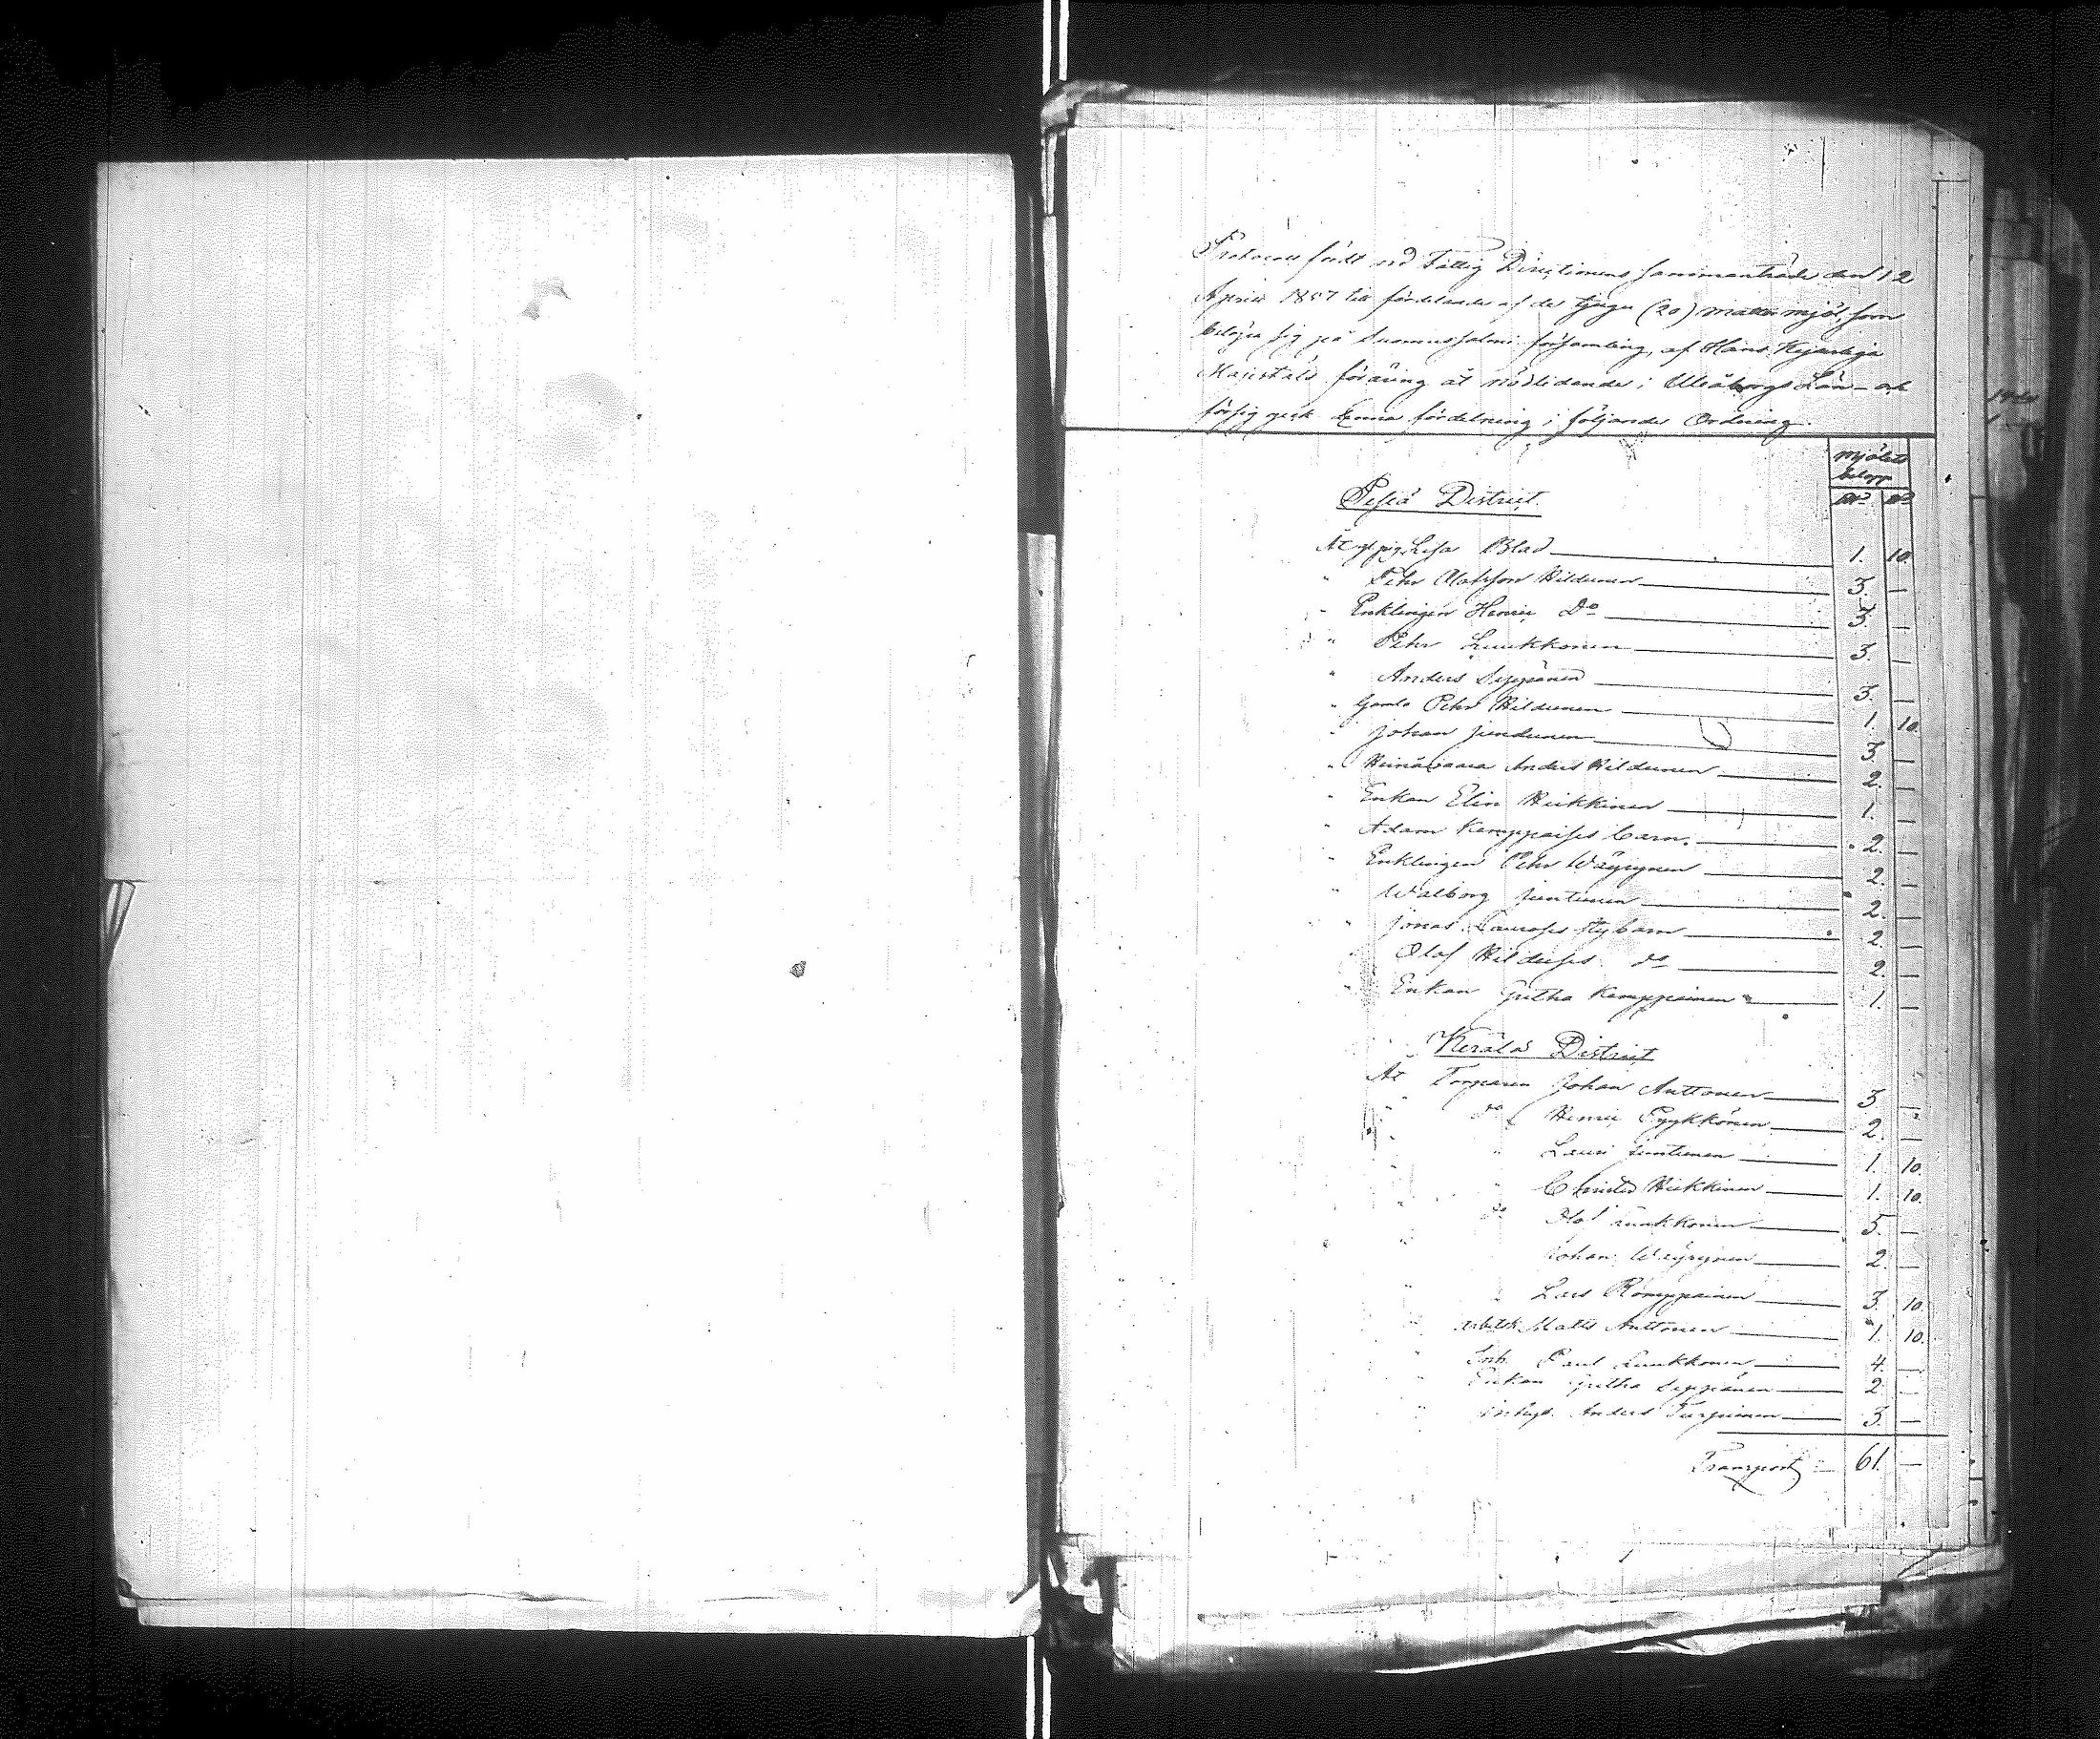 Protocoll fördt vid Fattig Directionens sammanträde den 12
Aprill 1857 till fördelande af de tjugu (20) mattor mjöl, som
belöpa sig på Suomussalmi församling, af Hans Kejserliga
Majestäts föräring åt nödlidande i Uleåborgs Län – och
försiggick denna fördelning i följande Ordning.
Mjölets
belopp
Pesiö District.
Åt Lisa Blad 1. 10.
" Pehr Olofsson Kildunen 3. —
" Enklingen Henric Do 3. —
" Pehr Luukkonen 3. —
" Anders Seppänen 3. —
" Gamla Pehr Kildunen 1. 10.
" Johan Jundunen 3. —
" Heinävaara Anders Kildunen 2. —
" Enkan Elin Heikkinen 1. —
" Adam Kemppaises barn. 2. —
" Enklingen Pehr Wäyrynen 2. —
" Walborg Juntunen 2. —
" Jonas Lauroses barn 2. —
" Olof Kilduses do 2. —
" Enkan Gretha Kemppainen 1. —
Kerälä District
Åt Torparen Johan Anttonen 3 —
" do Henric Pyykkönen 2. —
" " Lauri Juntunen 1. 10.
" " Christer Heikkinen 1. 10.
" do Olof Luukkonen 5 —
Johan Wäyrynen 2. —
" Lars Romppainen 3. 10.
" Matts Anttonen 1. 10.
" Inh. Paul Luukkonen 4. —
" Enkan Gretha Seppänen 2 —
" Inhys. Anders Turpeinen 3. —
Transport 61. —